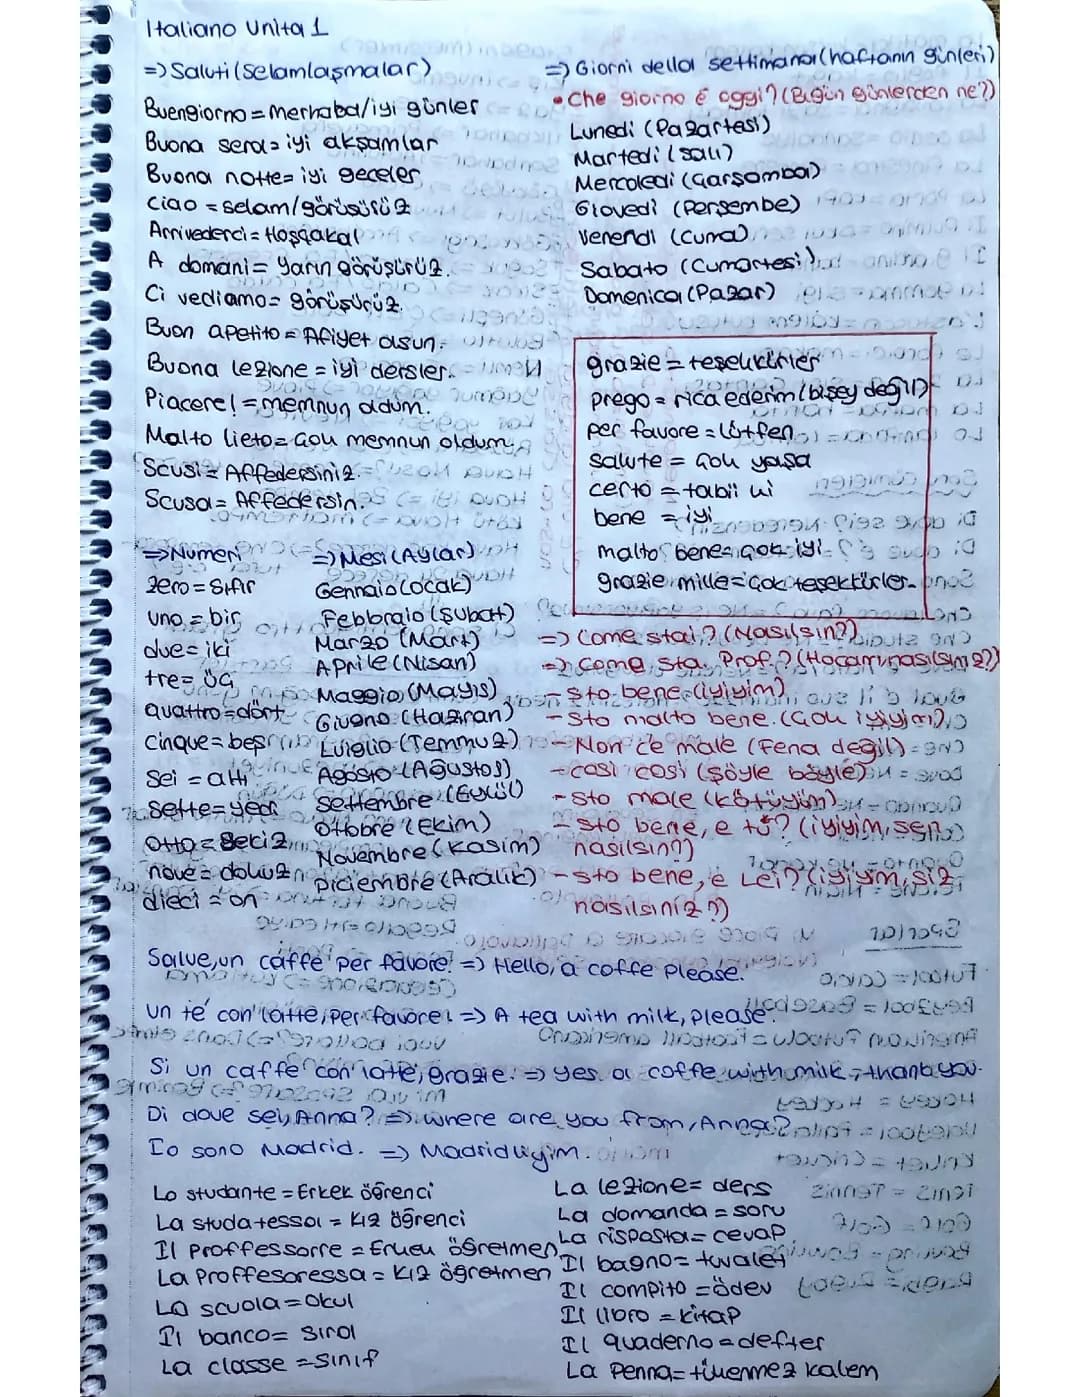 Italiano Unita 1
=> Saluti (Selamlaşmalar)
Buengiorno = Merhaba/iyi günler
Buona sera = iyi akşamlar
Buona notte = iyi geceler
Ciao = selam/görüşürüz
Arrivederci = Hoşçakal
A domani = Yarın görüşürüz.
Ci vediamo = görüşürüz.
Buon apetito = Afiyet olsun.
Buona lezione = iyi dersler.
Piacere! = memnun oldum.
Malto lieto = çok memnun oldum.
Scusi = Affedersiniz.
Scusa = Affedersin.
=> Giorni della settimana (haftanın günleri)
• Che giorno é oggi? (Bugün günlerden ne?)
Lunedi (Pazartesi)
Martedi (Salı)
Mercoledi (Çarşamba)
Giovedi (Perşembe)
Venerdi (Cuma)
Sabato (Cumartesi)
Domenica (Pazar)
grazie = teşekkürler
prego = rica ederim (bişey değil)
per favore = Lütfen
salute = çok yaşa
certo = tabii ki
bene = iyi
malto bene = çok iyi
grazie mille = çok teşekkürler
=> Numeri
zero = sıfır
uno = bir
due = iki
tre = üç
quattro = dört
cinque = beş
sei = altı
sette = yedi
otto = sekiz
nove = dokuz
dieci = on
=> Mesi (Aylar)
Gennaio (Ocak)
Febbraio (Şubat)
Marzo (Mart)
Aprile (Nisan)
Maggio (Mayıs)
Giugno (Haziran)
Luiglio (Temmuz)
Agosto (Ağustos)
Settembre (Eylül)
Ottobre (Ekim)
Novembre (Kasım)
Diciembre (Aralık)
=> Come stai? (Nasılsın?)
=> Come sta. Prof.? (Hocam nasılsınız?)
- Sto bene. (iyiyim)
- Sto malto bene. (Çok iyiyim)
- Non c'e male (Fena değil)
- cosi cosi (şöyle böyle)
- Sto male (kötüyüm)
- sto bene, e tu? (iyiyim, sen
nasılsın?)
- sto bene, e Lei? (iyiyim, siz
nasılsınız?)
Salve, un caffe per favore! => Hello, a coffe please.
Un té con latte, per favore! => A tea with milk, please.
Si un caffe con latte, grazie. => yes a coffe with milk, thank you.
Di dove sei, Anna? => where are you from, Anna?
Io sono Madrid. => Madridliyim.
Lo studante = Erkek öğrenci
La studatessa = Kız öğrenci
Il Proffessorre = Erkek öğretmen
La Proffesoressa = Kız öğretmen
La scuola = Okul
Il banco = sıra
La classe = sınıf
La lezione = ders
La domanda = soru
La risposta = cevap
Il bagno = tuvalet
Il compito = ödev
Il libro = kitap
Il quaderno = defter
La Penna = tükenmez kalem